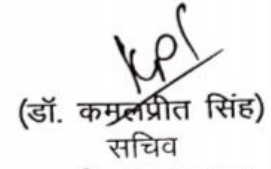 (डॉ. कमलप्रीत सिंह)
सचिव